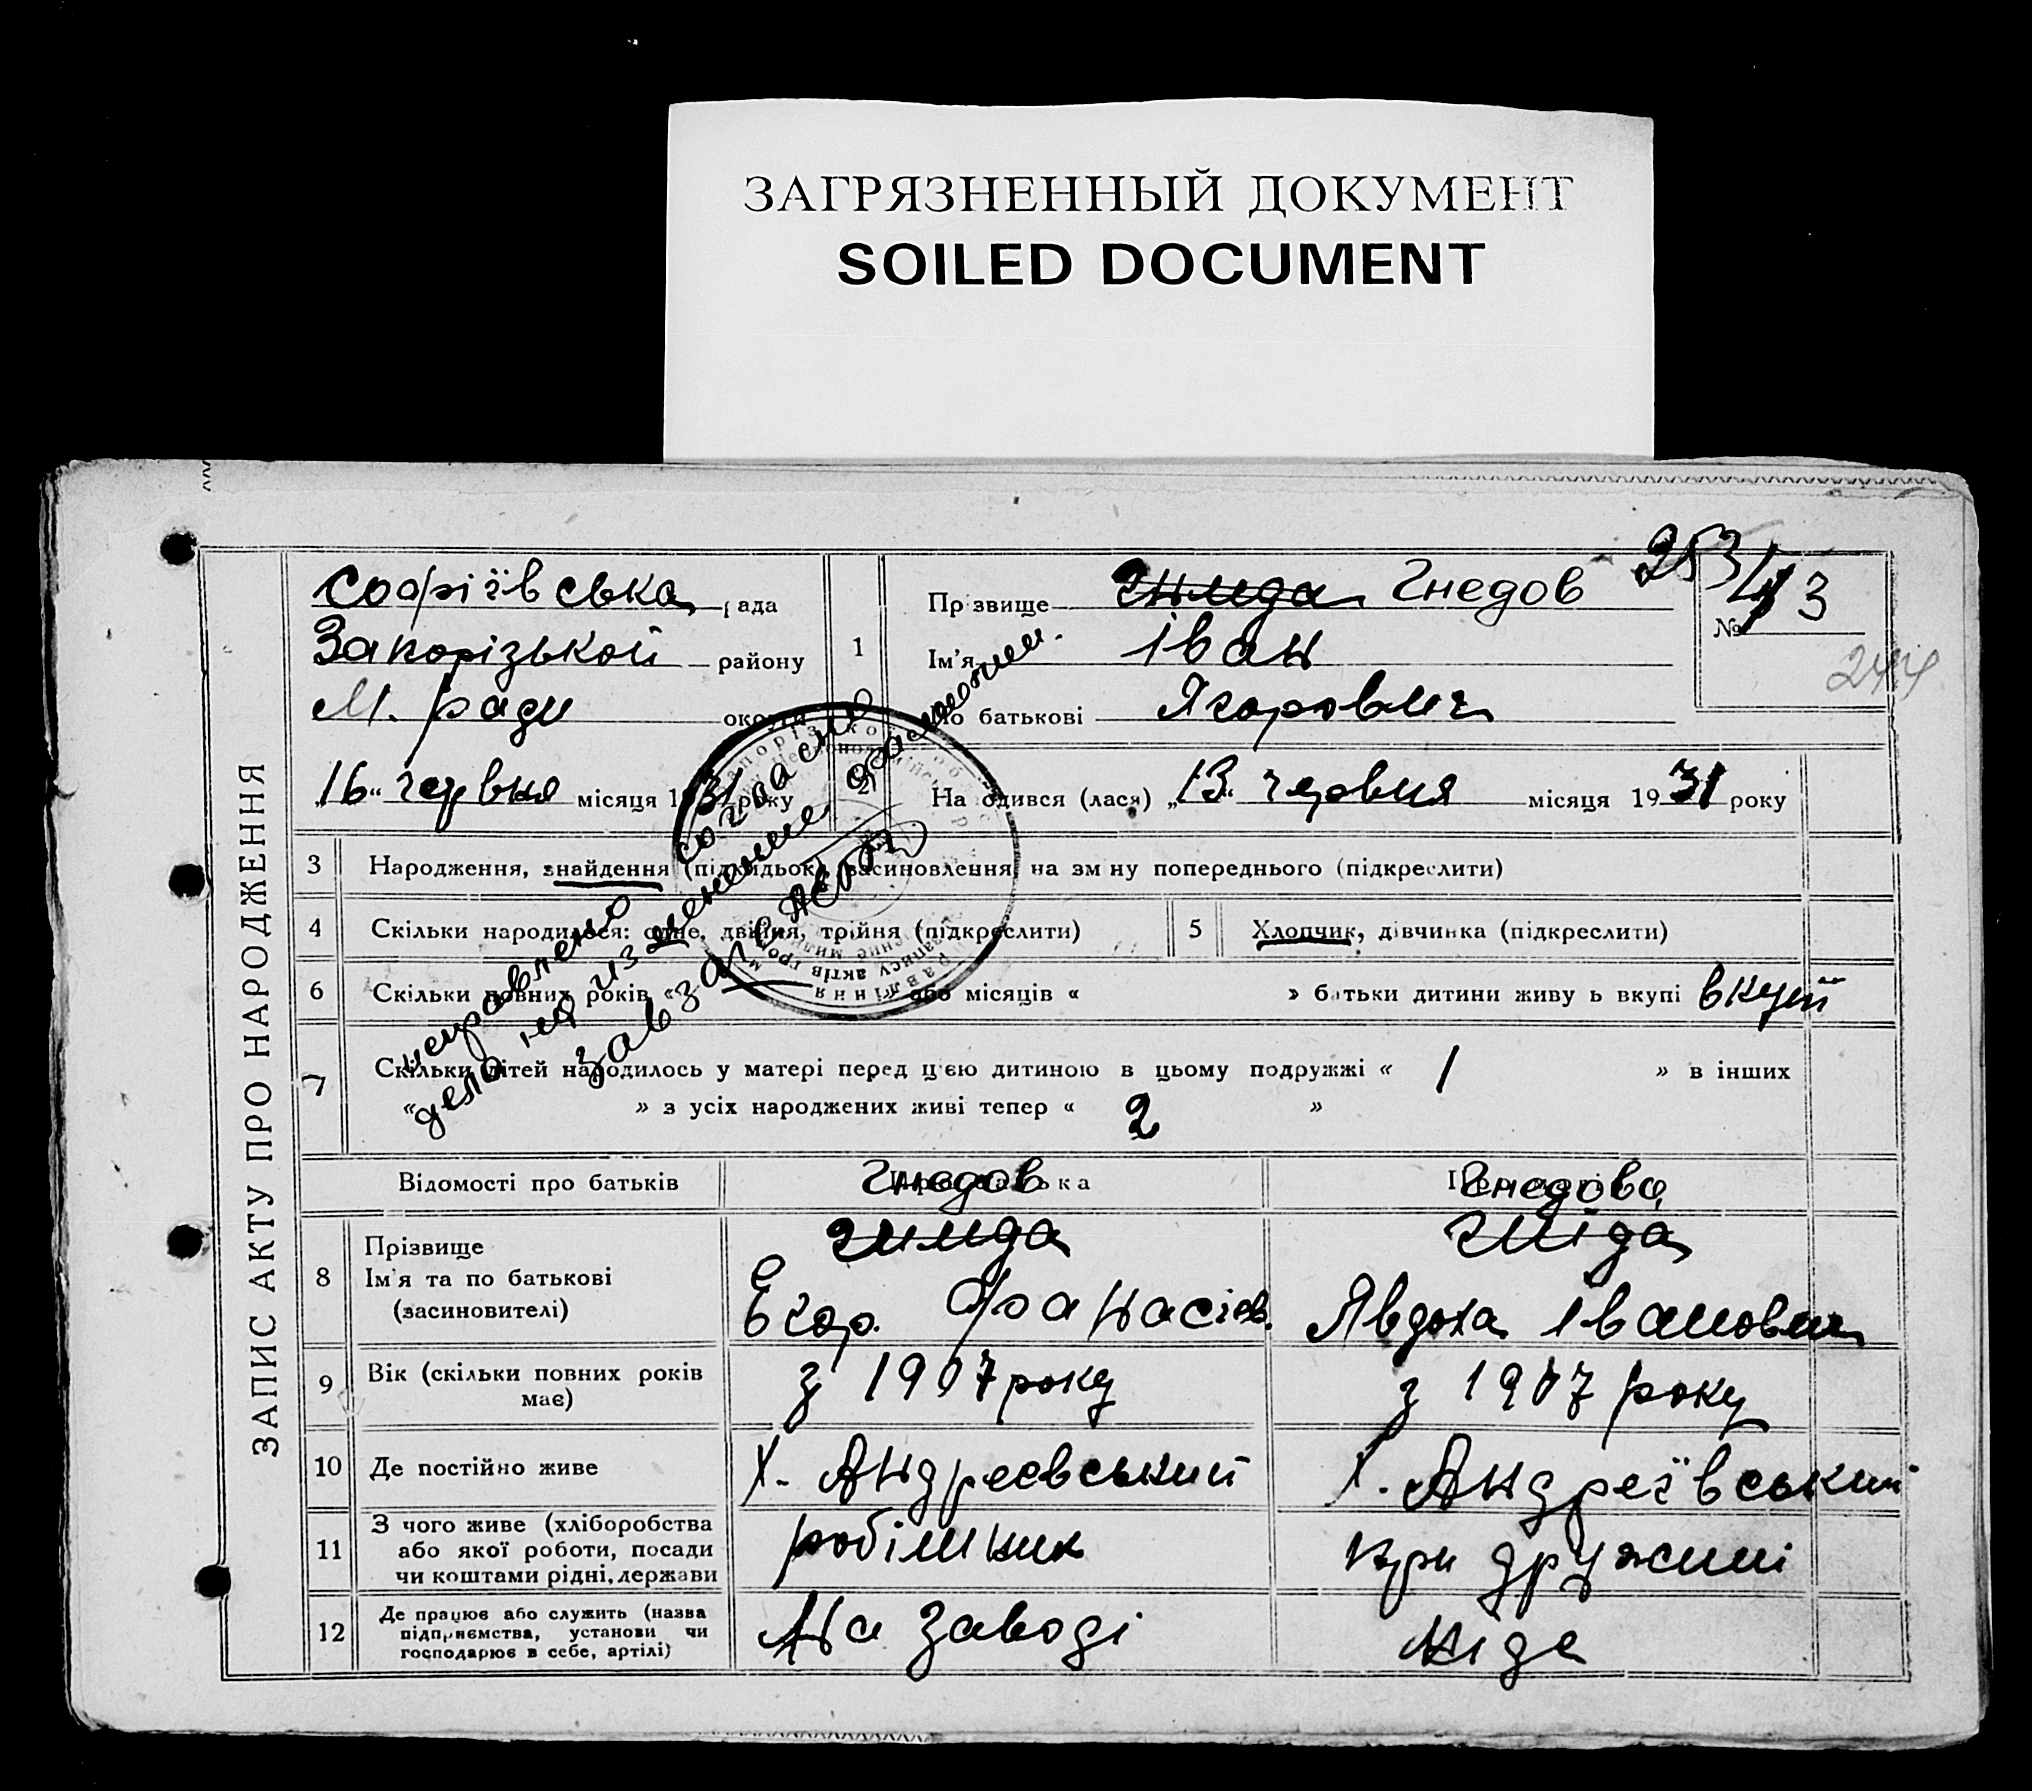 ЗАГРЯЗНЕННЫЙ ДОКУМЕНТ
SOILED DOCUMENT
ЗАПИС АКТУ ПРО НАРОДЖЕННЯ
Софіївська рада
Запорізькой району
М. ради округи
1
Прізвище Гнида Гнедов
Ім'я Іван
По батькові Ягорович
253
№ 43
244
"16" червня місяця 1931 року
2
На одився (лася) "13" червня місяця 1931 року
3 Народження, знайдення (підкидьок) засиновлення на зм ну попереднього (підкреслити)
4 Скільки народилося: одне, двійня, трійня (підкреслити)
5 Хлопчик, дівчинка (підкреслити)
6 Скільки повних років « або місяців « » батьки дитини живу ь вкупі вкупі
7 Скільки дітей народилось у матері перед цією дитиною в цьому подружжі « 1 » в інших
« » з усіх народжених живі тепер « 2 »
исправлено согласно
дела на изменение фамилии.
зав запс
Відомості про батьків
Гнедов
Гнедова
8 Прізвище
Ім'я та по батькові
(засновителі)
Гнида
Егор. Фанасіев.
Гніда
Явдоха Івановна
9 Вік (скільки повних років
має)
з 1907 року
з 1907 року
10 Де постійно живе
Х. Андреевський
Х. Андреївський
11 З чого живе (хліборобства
або якої роботи, посади
чи коштами рідні, держави
робітник
при дружині
12 Де працює або служить (назва
підприємства, установи чи
господарює в себе, артілі)
На заводі
Ніде